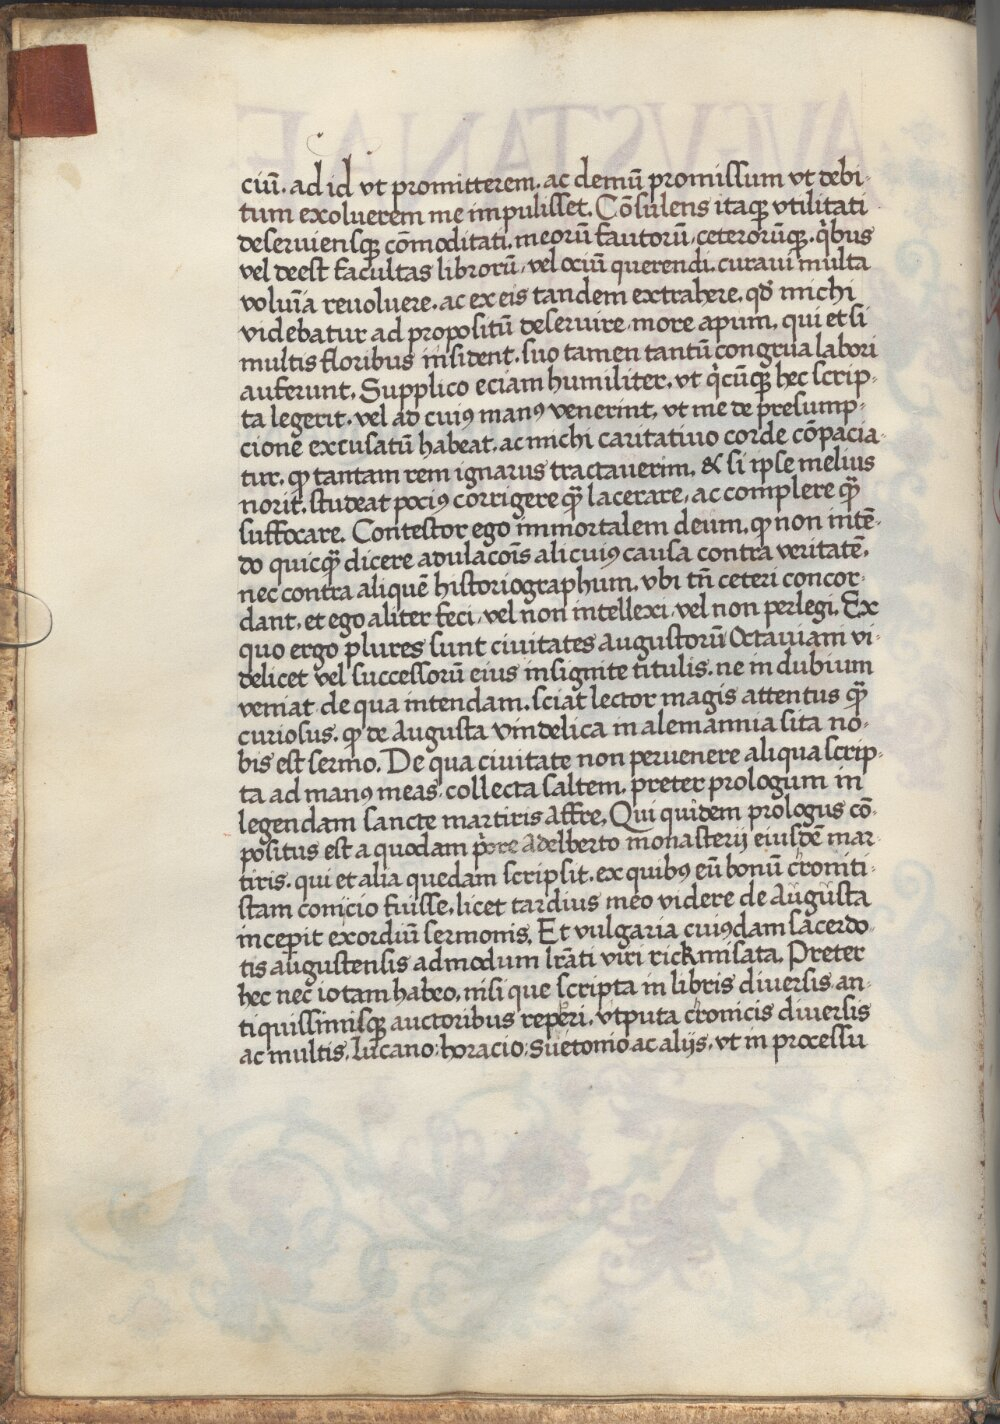 ciū. ad id vt promitterem. ac demū promissum vt debi-
tum exoluerem me impulisset. Cōsulens itaqꝫ vtilitati
deseruiensqꝫ cōmoditati. meorū fautorū, ceterorūqꝫ. qͥbus
vel deest facultas librorū, vel ociū querendi. curaui multa
volūīa reuoluere. ac ex eis tandem extrahere. qđ michi
videbatur ad propositū deseruire, more apum, qui et si
multis floribus insident. suo tamen tantū congrua labori
auferunt. Supplico eciam humiliter. vt qͥcūqꝫ hec scrip-
ta legerit. vel ad cuiꝰ manꝰ venerint, vt me de presump-
cione excusatū habeat. ac michi caritatiuo corde cōpacia-
tur. ꝙ tantam rem ignarus tractauerim. & si ipse melius
norit. studeat pociꝰ corrigere qꝫ̄ lacerare, ac complere qꝫ̄
suffocare. Contestor ego immortalem deum, ꝙ non intē-
do quicqꝫ̄ dicere adulacōis alicuiꝰ causa contra veritatē.
nec contra aliquē historiographum. vbi tn̄ ceteri concor-
dant. et ego aliter feci, vel non intellexi. vel non perlegi. Ex
quo ergo plures sunt ciuitates augustorū Octauiani vi-
delicet vel successorū eius insignite titulis. ne in dubium
veniat de qua intendam. sciat lector magis attentus qꝫ̄
curiosus. ꝙ de augusta vindelica in alemannia sita no-
bis est sermo. De qua ciuitate non peruenere aliqua scrip-
ta ad manꝰ meas collecta saltem. preter prologum in
legendam sancte martiris Affre. Qui quidem prologus cō-
positus est a quodam pͥore Adelberto monasterij eiusdē mar-
tiris. qui et alia quedam scripsit. ex quibꝰ eū bonū croniti-
stam conicio fuisse. licet tardius meo videre de Augusta
inceperit exordiū sermonis. Et vulgaria cuiꝰdam sacerdo-
tis augustensis admodum lr̄ati viri rickmisata. Preter
hec nec iotam habeo, nisi que scripta in libris diuersis an-
tiquissimisqꝫ auctoribus reperi. vtputa cronicis diuersis
ac multis. lucano: horacio: Suetonio ac alijs. vt in processu